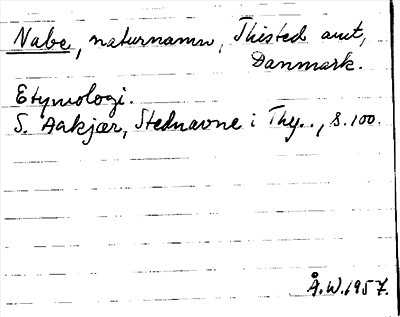 Nabe, naturnamn, Thisted amt,
Danmark.
Etymologi.
S. Aakjær, Stednavne i Thy.., s.100.
Å.W.1957.